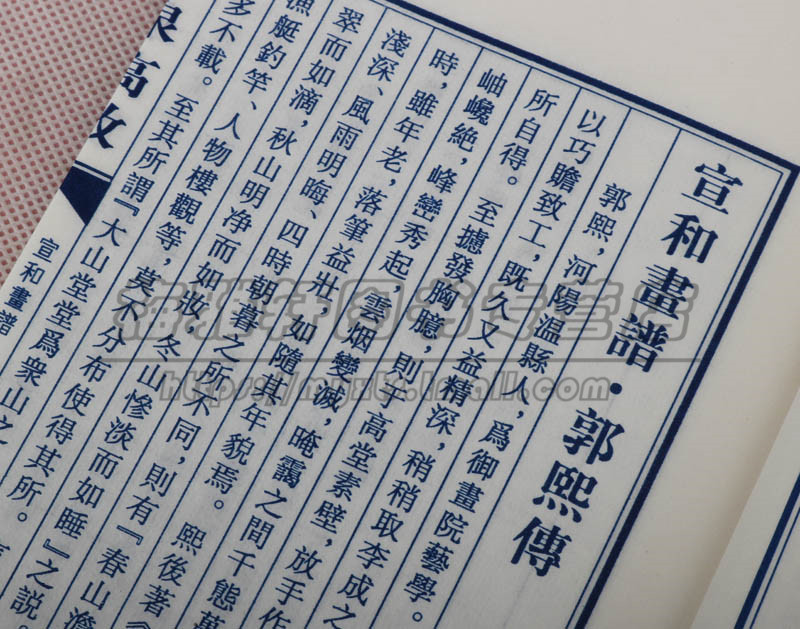 宣和畫譜·郭熙傳
郭熙，河陽溫縣人，爲御畫院藝學。
以巧贍致工，既久又益精深，稍稍取李成之
所自得。至攄發胸臆，則于高堂素壁，放手作
岫巉絶，峰巒秀起，雲烟變滅，晻靄之間千態萬
時，雖年老，落筆益壯，如隨其年貌焉。熙後著《
淺深、風雨明晦、四時朝暮之所不同，則有『春山澹
翠而如滴，秋山明净而如妝，冬山慘淡而如睡』之説。
漁艇釣竿、人物樓觀等，莫不分布使得其所。
多不載。至其所謂『大山堂堂爲衆山之
泉高致
宣和畫譜
图书专营店